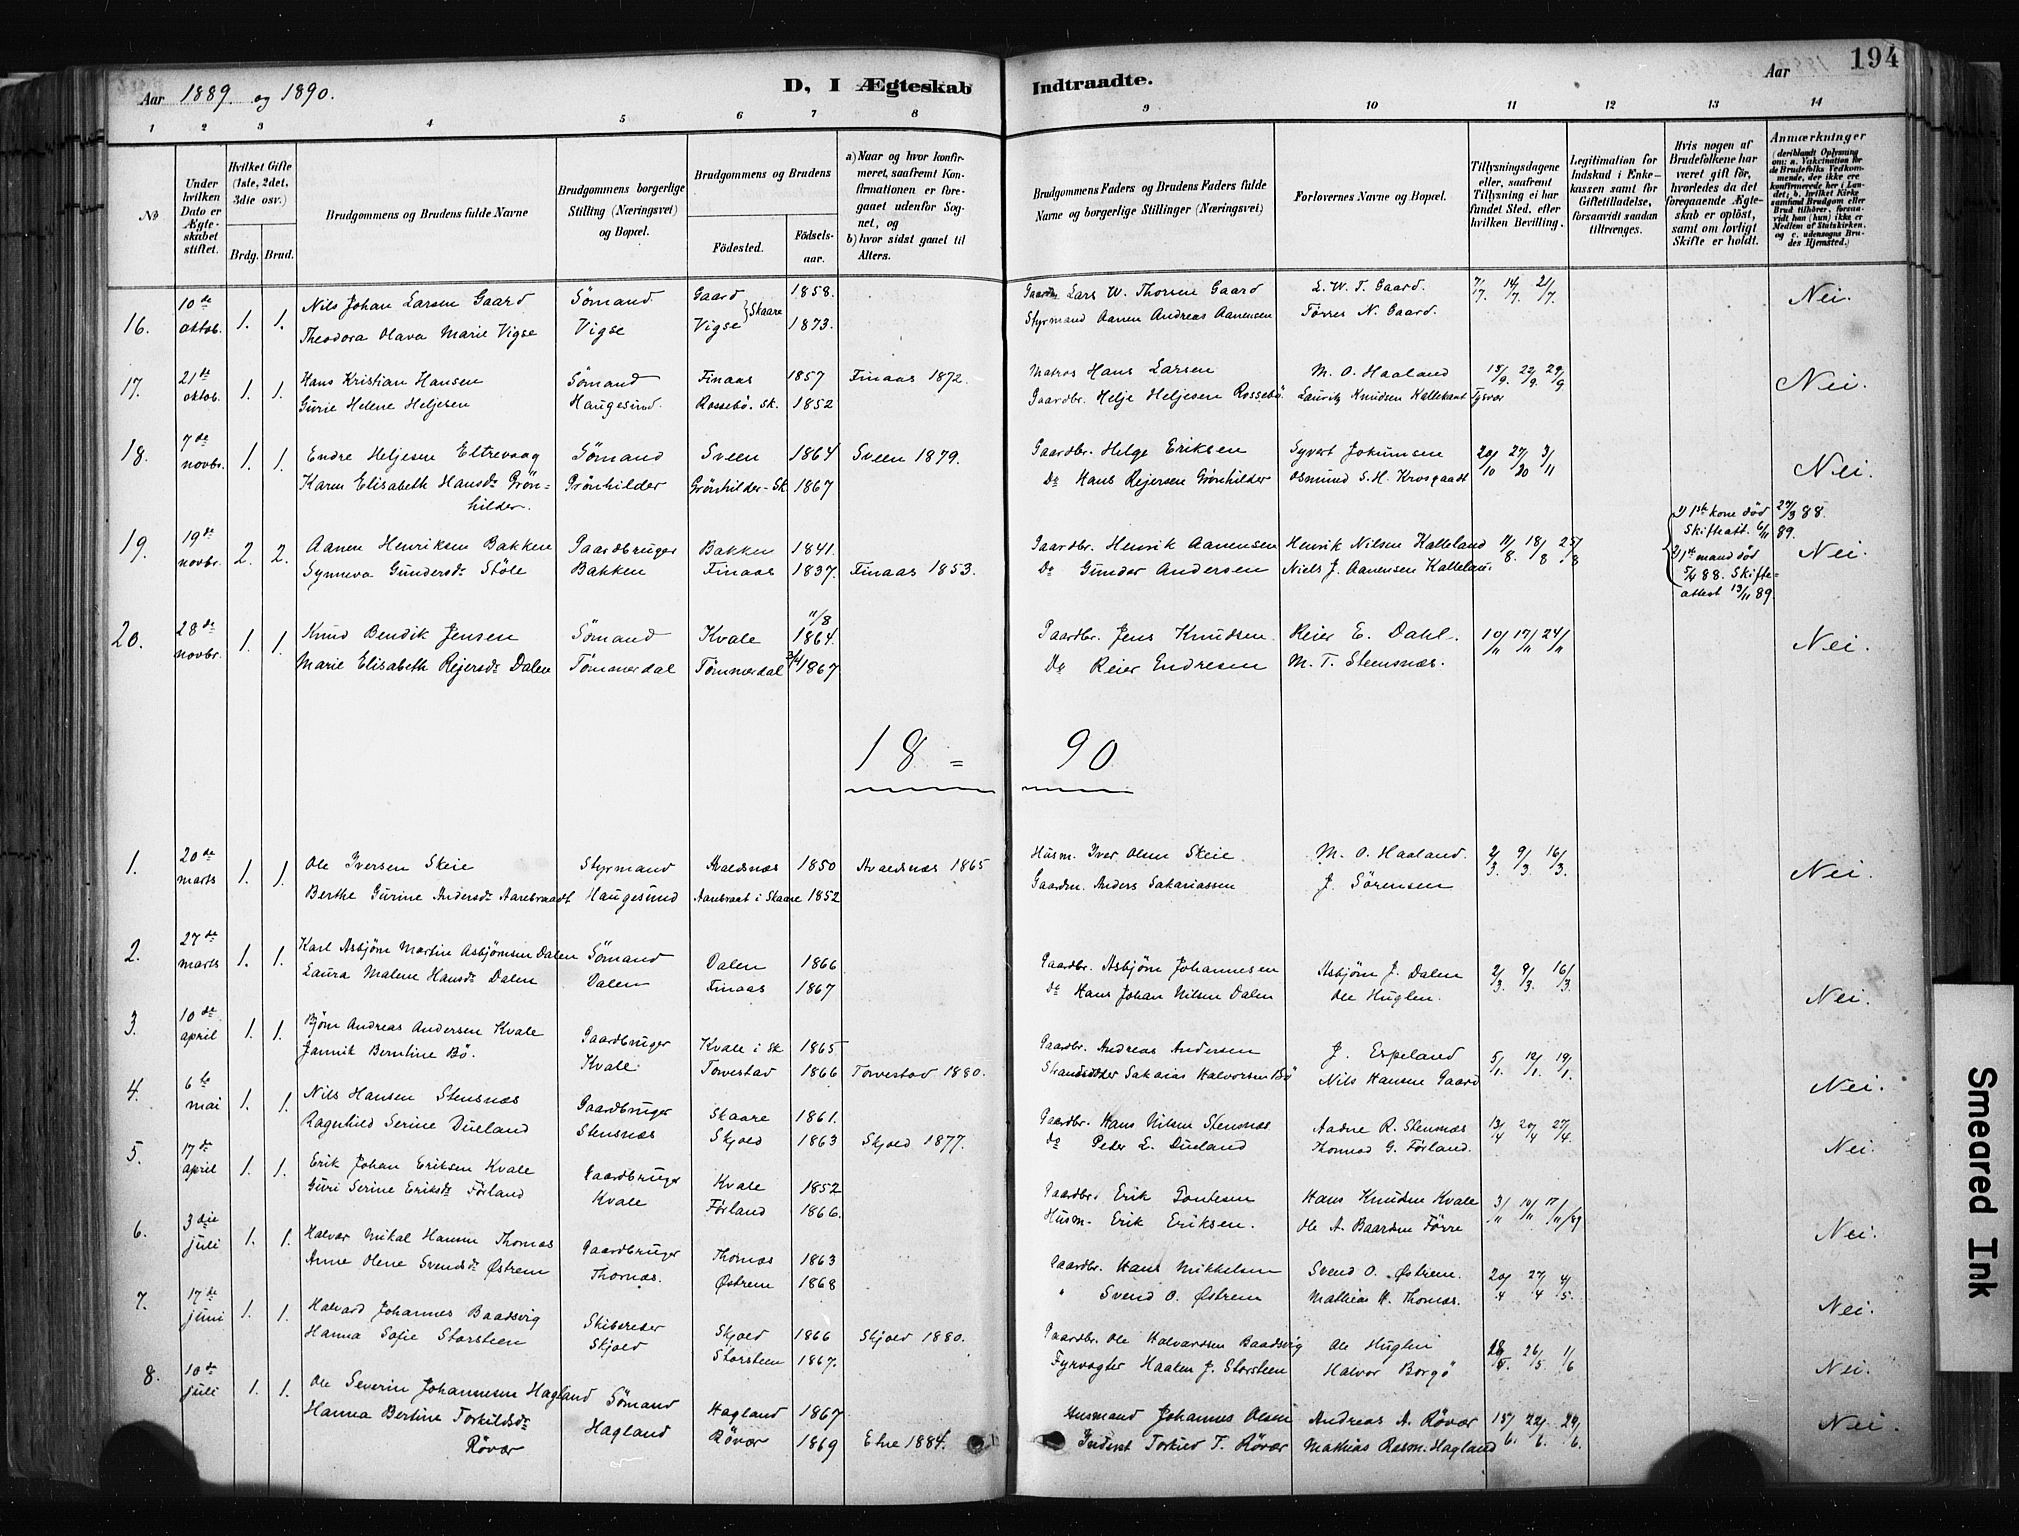 194
Aar 1889 og 1890.
D, I Ægteskab Indtraadte.
Aar
1 2 3 4 5 6 7 8 9 10 11 12 13 14
No
Under hvilken Dato er Ægteskabet stiftet.
Hvilket Gifte (1ste, 2det, 3die osv.)
Brdg. Brud.
Brudgommens og Brudens fulde Navne
Brudgommens borgerlige Stilling (Næringsvei) og Bopæl.
Brudgommens og Brudens
Födested.
Födselsaar.
a) Naar og hvor konfirmeret, saafremt Konfirmationen er foregaaet udenfor Sognet, og
b) hvor sidst gaaet til Alters.
Brudgommens Faders og Brudens Faders fulde Navne og borgerlige Stillinger (Næringsvei)
Forlovernes Navne og Bopæl.
Tillysningsdagene eller, saafremt Tillysning ei har fundet Sted, efter hvilken Bevilling.
Legitimation for Indskud i Enkekassen samt for Giftetilladelse, forsaavidt saadan tiltrænges.
Hvis nogen af Brudefolkene har været gift för, hvorledes da det foregaaende Ægteskab er oplöst, samt om lovligt Skifte er holdt.
Anmærkninger
(deriblandt Oplysning om: a. Vakcination for de Brudefolks Vedkommende, der ikke ere konfirmerede her i Landet; b. hvilket Kirkesamfund Brudgom eller Brud tilhörer, forsaavidt han (hun) ikke er Medlem af Statskirken, og c. udensogns Brudes Hjemsted.)
16. 10de oktob. 1. 1. Nils Johan Larsen Gaard Sömand Gaard 1858. Gaardbr. Lars W. Thorsen Gaard L. W. T. Gaard. 7/7. 14/7. 21/7. Nei.
Theodora Olava Marie Vigse Vigse Vigse Skaare 1873. Styrmand Aanen Andreas Aanensen Törres N. Gaard.
17. 21de oktob. 1. 1. Hans Kristian Hansen Sömand Finaas 1857 Finaas 1872. Matros Hans Larsen M. O. Haaland 15/9. 22/9. 29/9 Nei.
Gurie Helene Heljesen Haugesund. Rossebö. Sk. 1852 Gaardbr. Helje Heljesen Rossebö. Lauritz Knudsen Kallekant Tysvær
18. 7de novbr. 1. 1. Endre Heljesen Eltrevaag Sömand Sveen 1864 Sveen 1879. Gaardbr. Helge Eriksen Syvert Johannsen 20/10 27/10 3/11 Nei.
Karen Elisabeth Hansdr Grön- Grönhilder Grönhilder-Sk 1867 Do Hans Rejersen Grönhilder Osmund S. H. Krosgaadt
hilder.
19. 19de novbr. 2. 2. Aanen Henriksen Bakken Gaardbruger Bakken 1841. Gaardbr. Henrik Aanensen Henrik Nilsen Kalleland 11/8. 18/8 25/8 1) 1ste kone död 27/3 88. Skifteatt. 6/11 89. Nei.
Synneva Gundersdr Stöle Bakken Finaas 1837. Finaas 1853. Do Gunder Andersen Niels J. Aanensen Kallelan. 2) 1ste mand död 5/4 88. Skifteattest 13/11 89.
20. 28de novbr. 1. 1. Knud Bendik Jensen Sömand Kvale 11/8 1864. Gaardbr. Jens Knudsen. Reier E. Dahl. 10/11 17/11 24/11 Nei.
Marie Elisabeth Rejersdr Dalen Tömmerdal Tömmerdal 1867 Do Reier Endresen M. T. Stensnæs.
18 = 90
1. 20de marts 1. 1. Ole Iversen Skeie Styrmand Avaldsnæs 1850 Avaldsnæs 1865 Husm. Iver Olsen Skeie M. O. Haaland. 2/3. 9/3. 16/3. Nei.
Berthe Gurine Andersdr Aarebraadt Haugesund Aarebraat i Skaare 1852 Gaardm. Anders Sakariassen J. Sörensen
2. 27de marts 1. 1. Karl Asbjörn Martin Asbjörnsen Dalen Sömand Dalen 1866 Gaardbr. Asbjörn Johannesen Asbjörn J. Dalen 2/3. 9/3. 16/3. Nei.
Laura Malene Hansdr Dalen Dalen Finaas 1867 do Hans Johan Nilsen Dalen Ole Huglen.
3. 10de april 1. 1. Björn Andreas Andersen Kvale Gaardbruger Kvale i Sk 1865 Gaardbr. Andreas Andersen J. Espeland 5/1. 12/1. 19/1. Nei.
Jannik Berntine Bö. Kvale. Torvestad 1866 Torvestad 1880. Strandsidder Sakaias Halvorsen Bö Nils Hansen Gaard
4. 6te mai 1. 1. Nils Hansen Stensnæs Gaardbruger Skaare 1861. Gaardbr. Hans Nilsen Stensnæs Aadne R. Stensnæs 13/4 20/4 27/4. Nei.
Ragnhild Serine Dueland Stensnæs Skjold 1863 Skjold 1877. do Peder L. Dueland Thomas G. Förland.
5. 17de april 1. 1. Erik Johan Eriksen Kvale Gaardbruger Kvale 1852 Gaardbr. Erik Tontesen Hans Knudsen Kvale 3/11 10/11 17/11/89 Nei.
Guri Serine Eriksdr Förland Kvale Förland 1866. Husm. Erik Eriksen. Ole A. Baardsen Förre
6. 3die juli 1. 1. Halvor Mikal Hansen Thomas Gaardbruger Thomas 1863 Gaardbr. Hans Mikkelsen Svend O. Østrem. 20/4 27/4 4/5. Nei.
Anne Olene Svendsdr Østrem Thomas. Østrem 1868 " Svend O. Østrem Mathias H. Thomas.
7. 17de juni 1. 1. Halvard Johannes Baadsvig Skibsreder Skjold 1866 Skjold 1880. Gaardbr. Ole Halvardsen Baadsvig Ole Huglen 26/5 1/6 Nei.
Hanna Sofie Storsteen Skjold Storsteen 1867. Fyrvogter Haaken J. Storsteen Halvor Borgö
8. 10de juli 1. 1. Ole Severin Johannesen Hagland Sömand Hagland 1867 Husmand Johannes Olsen Andreas A. Rövær 15/6. 22/6. 29/6. Nei.
Hanna Bertine Torkildsdr Hagland Rövær 1869 Etne 1884. Inderst Torkild T. Rövær Mathias Rasm. Hagland
Rövær
Smeared Ink